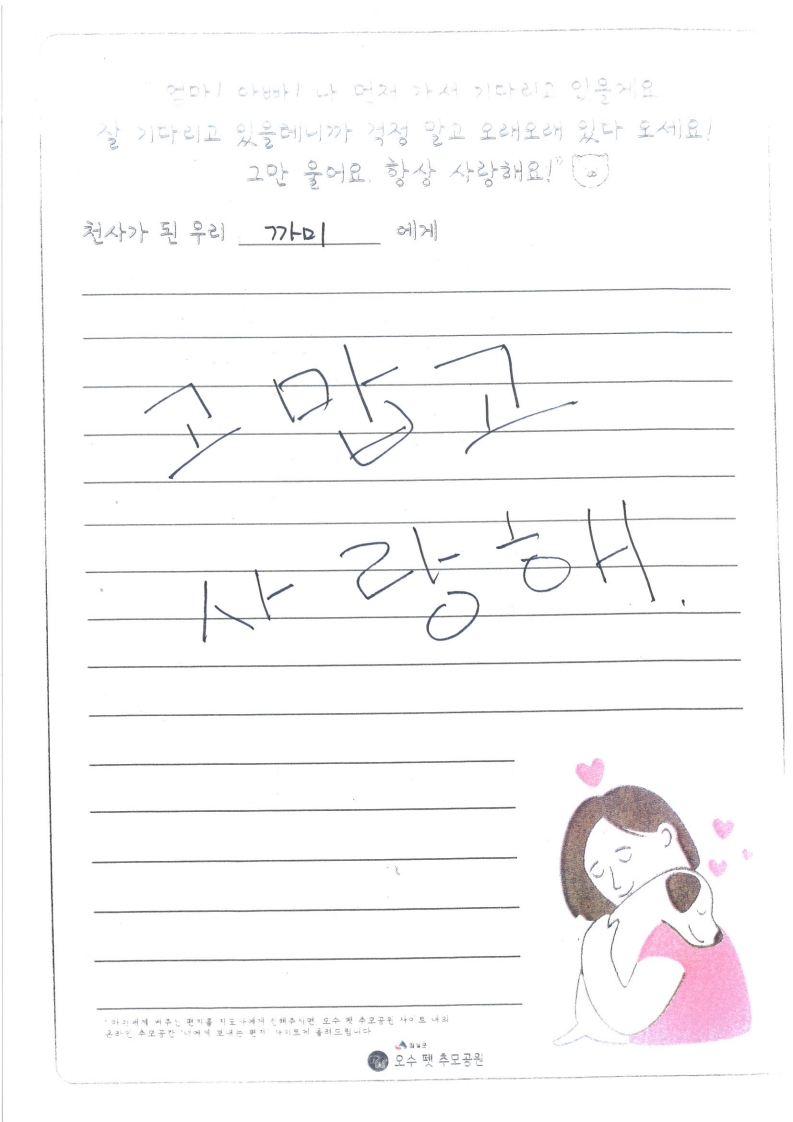 엄마! 아빠! 나 먼저 가서 기다리고 있을게요
잘 기다리고 있을테니까 걱정 말고 오래오래 있다 오세요!
그만 울어요. 항상 사랑해요!"
천사가 된 우리 까미 에게
고맙고
사랑해.
써주신 편지를 전해주시면 오수 펫 추모공원 사이트 내의
온라인 추모공간 보내는 편지 올려드립니다
임실군
오수 펫 추모공원